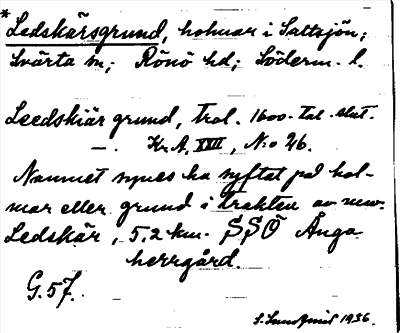 * Ledskärsgrund, holmar i Saltsjön;
Svärta sn; Rönö hd; Söderm. l.
Leedskiär grund, trol. 1600-tal. slut.
—. Kr. A. XXII, N:o 26.
Namnet synes ha syftat på hol-
mar eller grund i trakten av nuv.
Ledskär, 5,2 km. SSÖ Ånga
herrgård.
G. 57.
S. Lundqvist 1936.